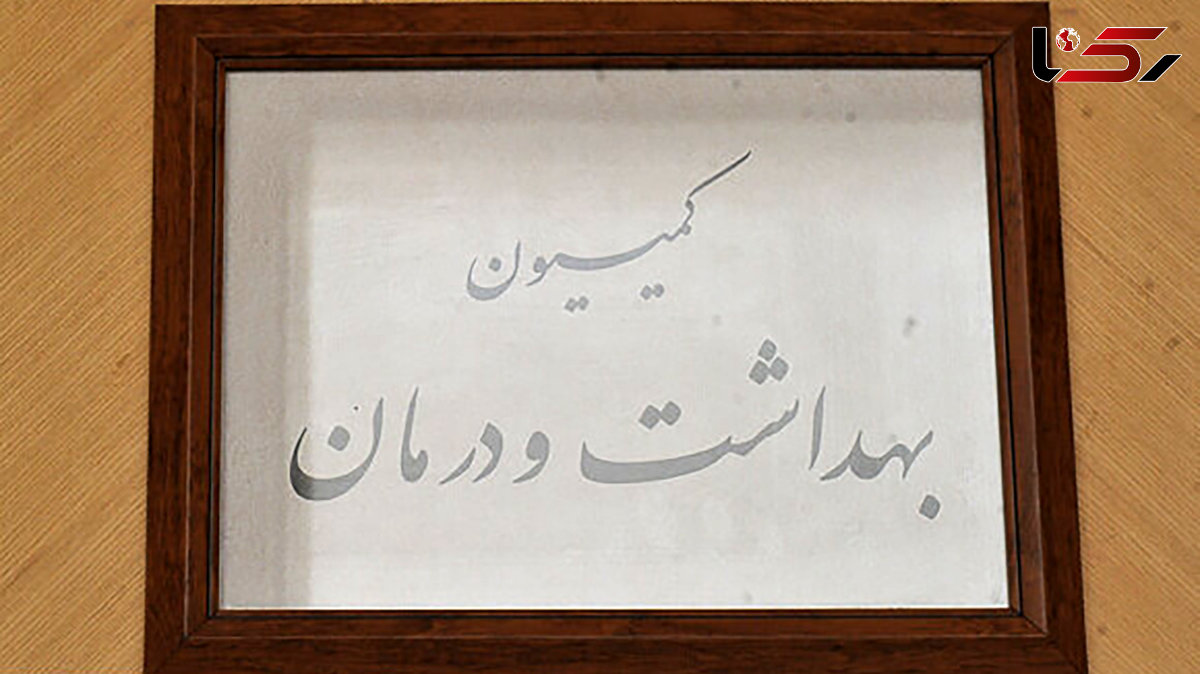 رکنا
کمیسیون
بهداشت و درمان